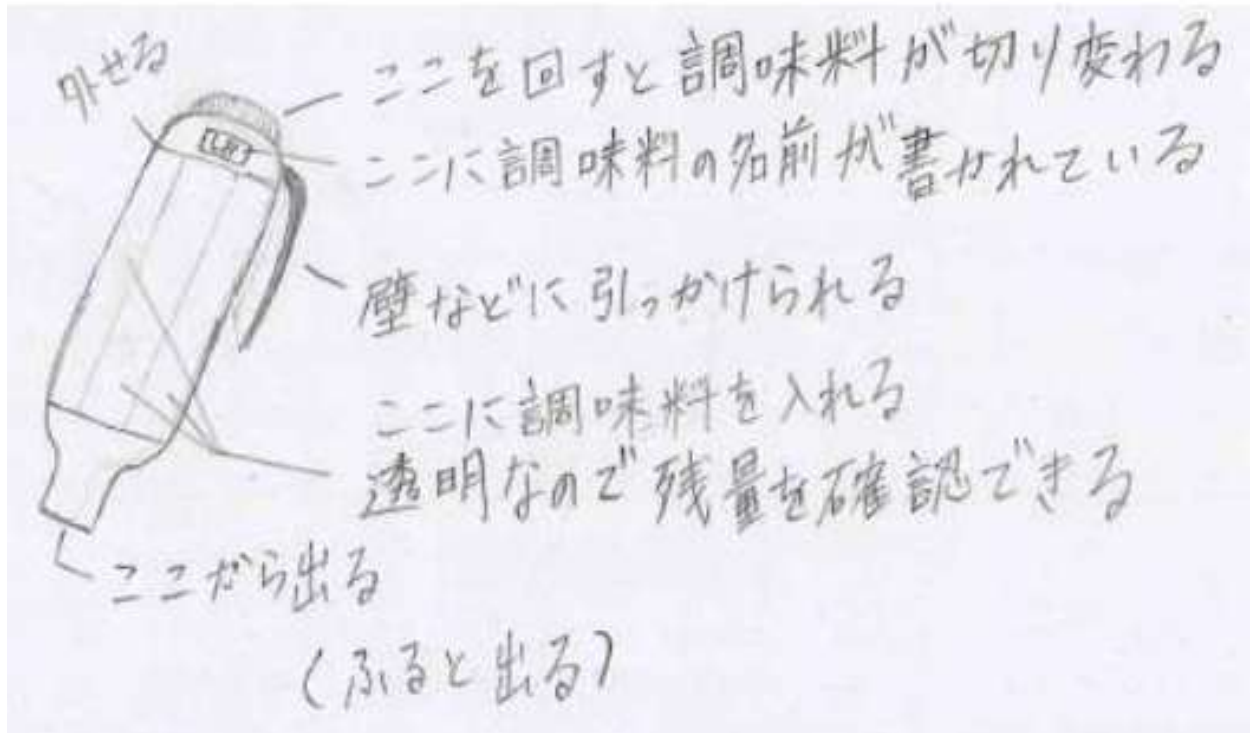 外せる
ここを回すと調味料が切り変わる
ここに調味料の名前が書かれている
壁などに引っかけられる
ここに調味料を入れる
透明なので残量を確認できる
ここから出る
(ふると出る)